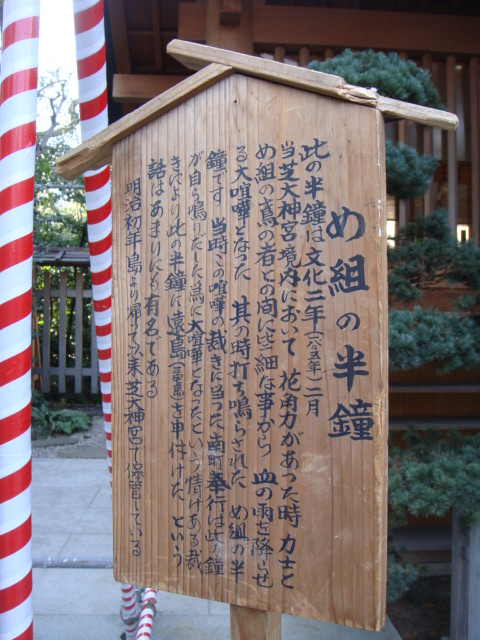 め組の半鐘
此の半鐘は文化二年(一八〇五年)二月
当芝大神宮境内において花角力があった時力士と
め組の鳶の者との間に些細な事から血の雨を降らせ
る大喧嘩となった其の時打ち鳴らされため組の半
鐘です当時この喧嘩の裁きに当った南町奉行は此の鐘
が自ら鳴りだした為に大喧嘩となったという情けある裁
きにより此の半鐘に遠島(三宅島)を申付けたという
話はあまりにも有名である
明治初年島より帰って以来芝大神宮で保管している